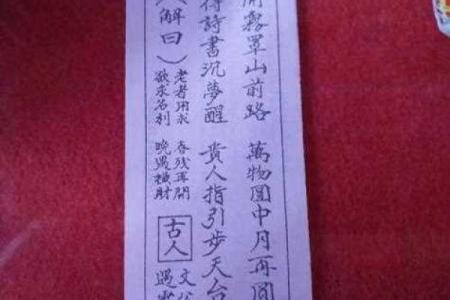 開霧罩山前路 萬物圓中月再圓
得詩書沉夢醒 貴人指引步天台
解曰）
老者用求 春残再開
欲求名利 晚遇橫財
古人
文公
遇